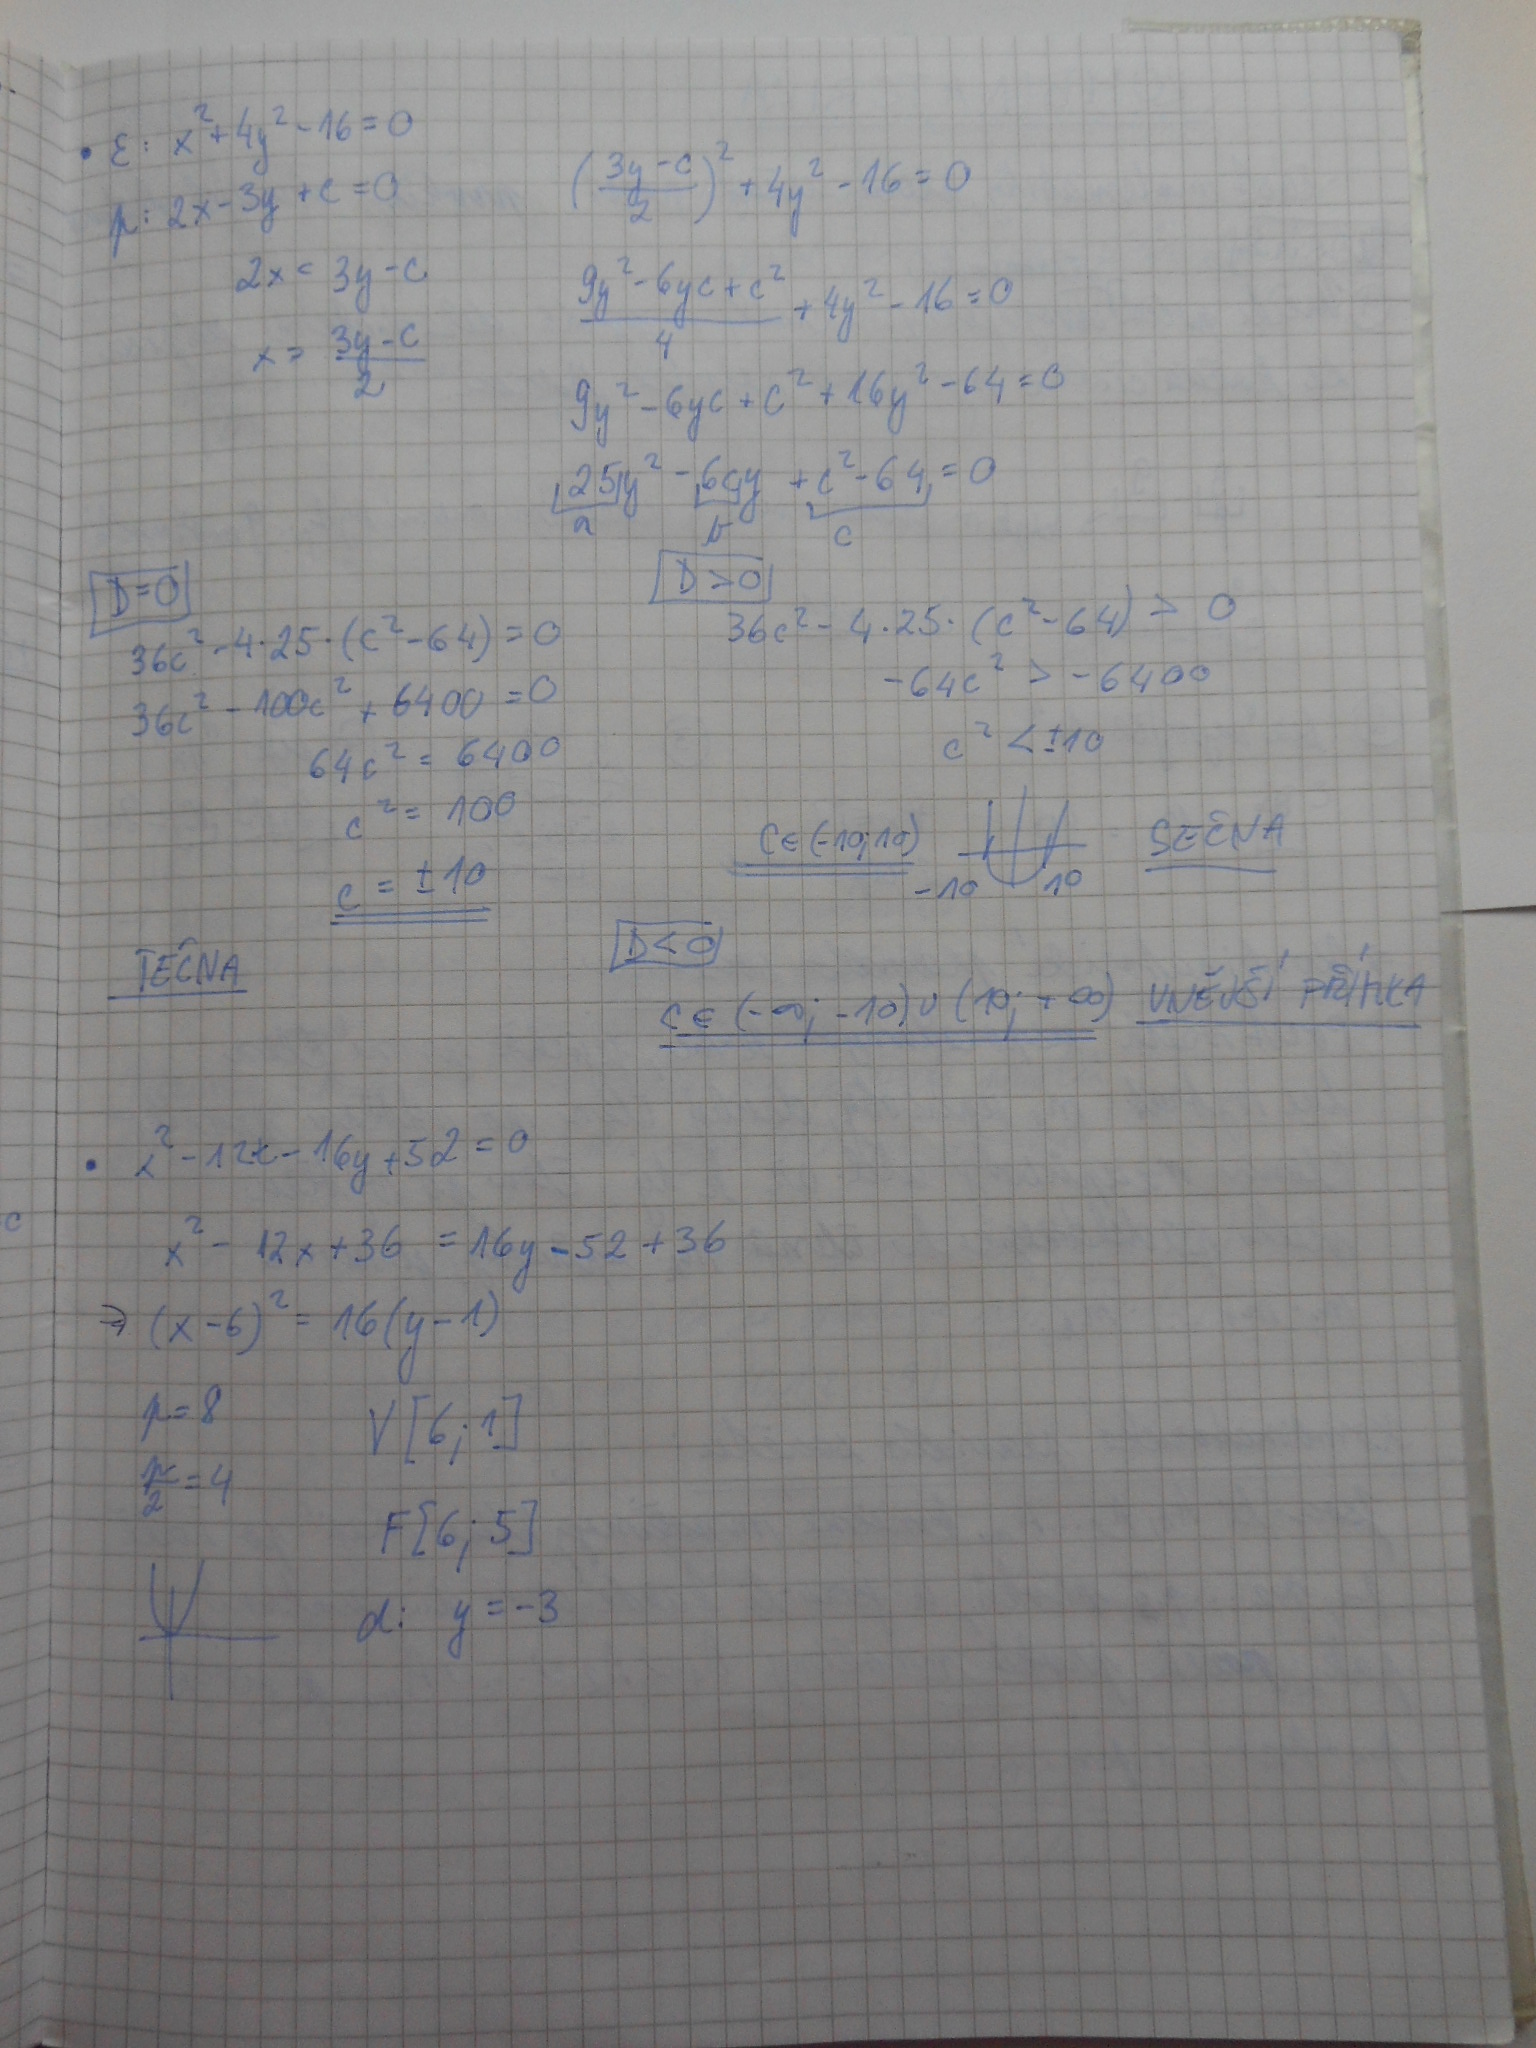 • ε: x²+4y²-16=0
p: 2x-3y+c=0
2x = 3y-c
x = (3y-c)/2
((3y-c)/2)² + 4y² - 16 = 0
(9y²-6yc+c²)/4 + 4y² - 16 = 0
9y² - 6yc + c² + 16y² - 64 = 0
25y² - 6cy + c² - 64 = 0
a b c
D=0
36c² - 4·25·(c²-64) = 0
36c² - 100c² + 6400 = 0
64c² = 6400
c² = 100
c = ±10
TEČNA
D>0
36c² - 4·25·(c²-64) > 0
-64c² > -6400
c² < ±10
c∈(-10;10)
-10 10
SEČNA
D<0
c∈(-∞;-10)∪(10;+∞) VNĚJŠÍ PŘÍMKA
• x²-12x-16y+52=0
x² - 12x + 36 = 16y - 52 + 36
⇒ (x-6)² = 16(y-1)
p=8
p/2 = 4
V[6;1]
F[6;5]
d: y = -3
c